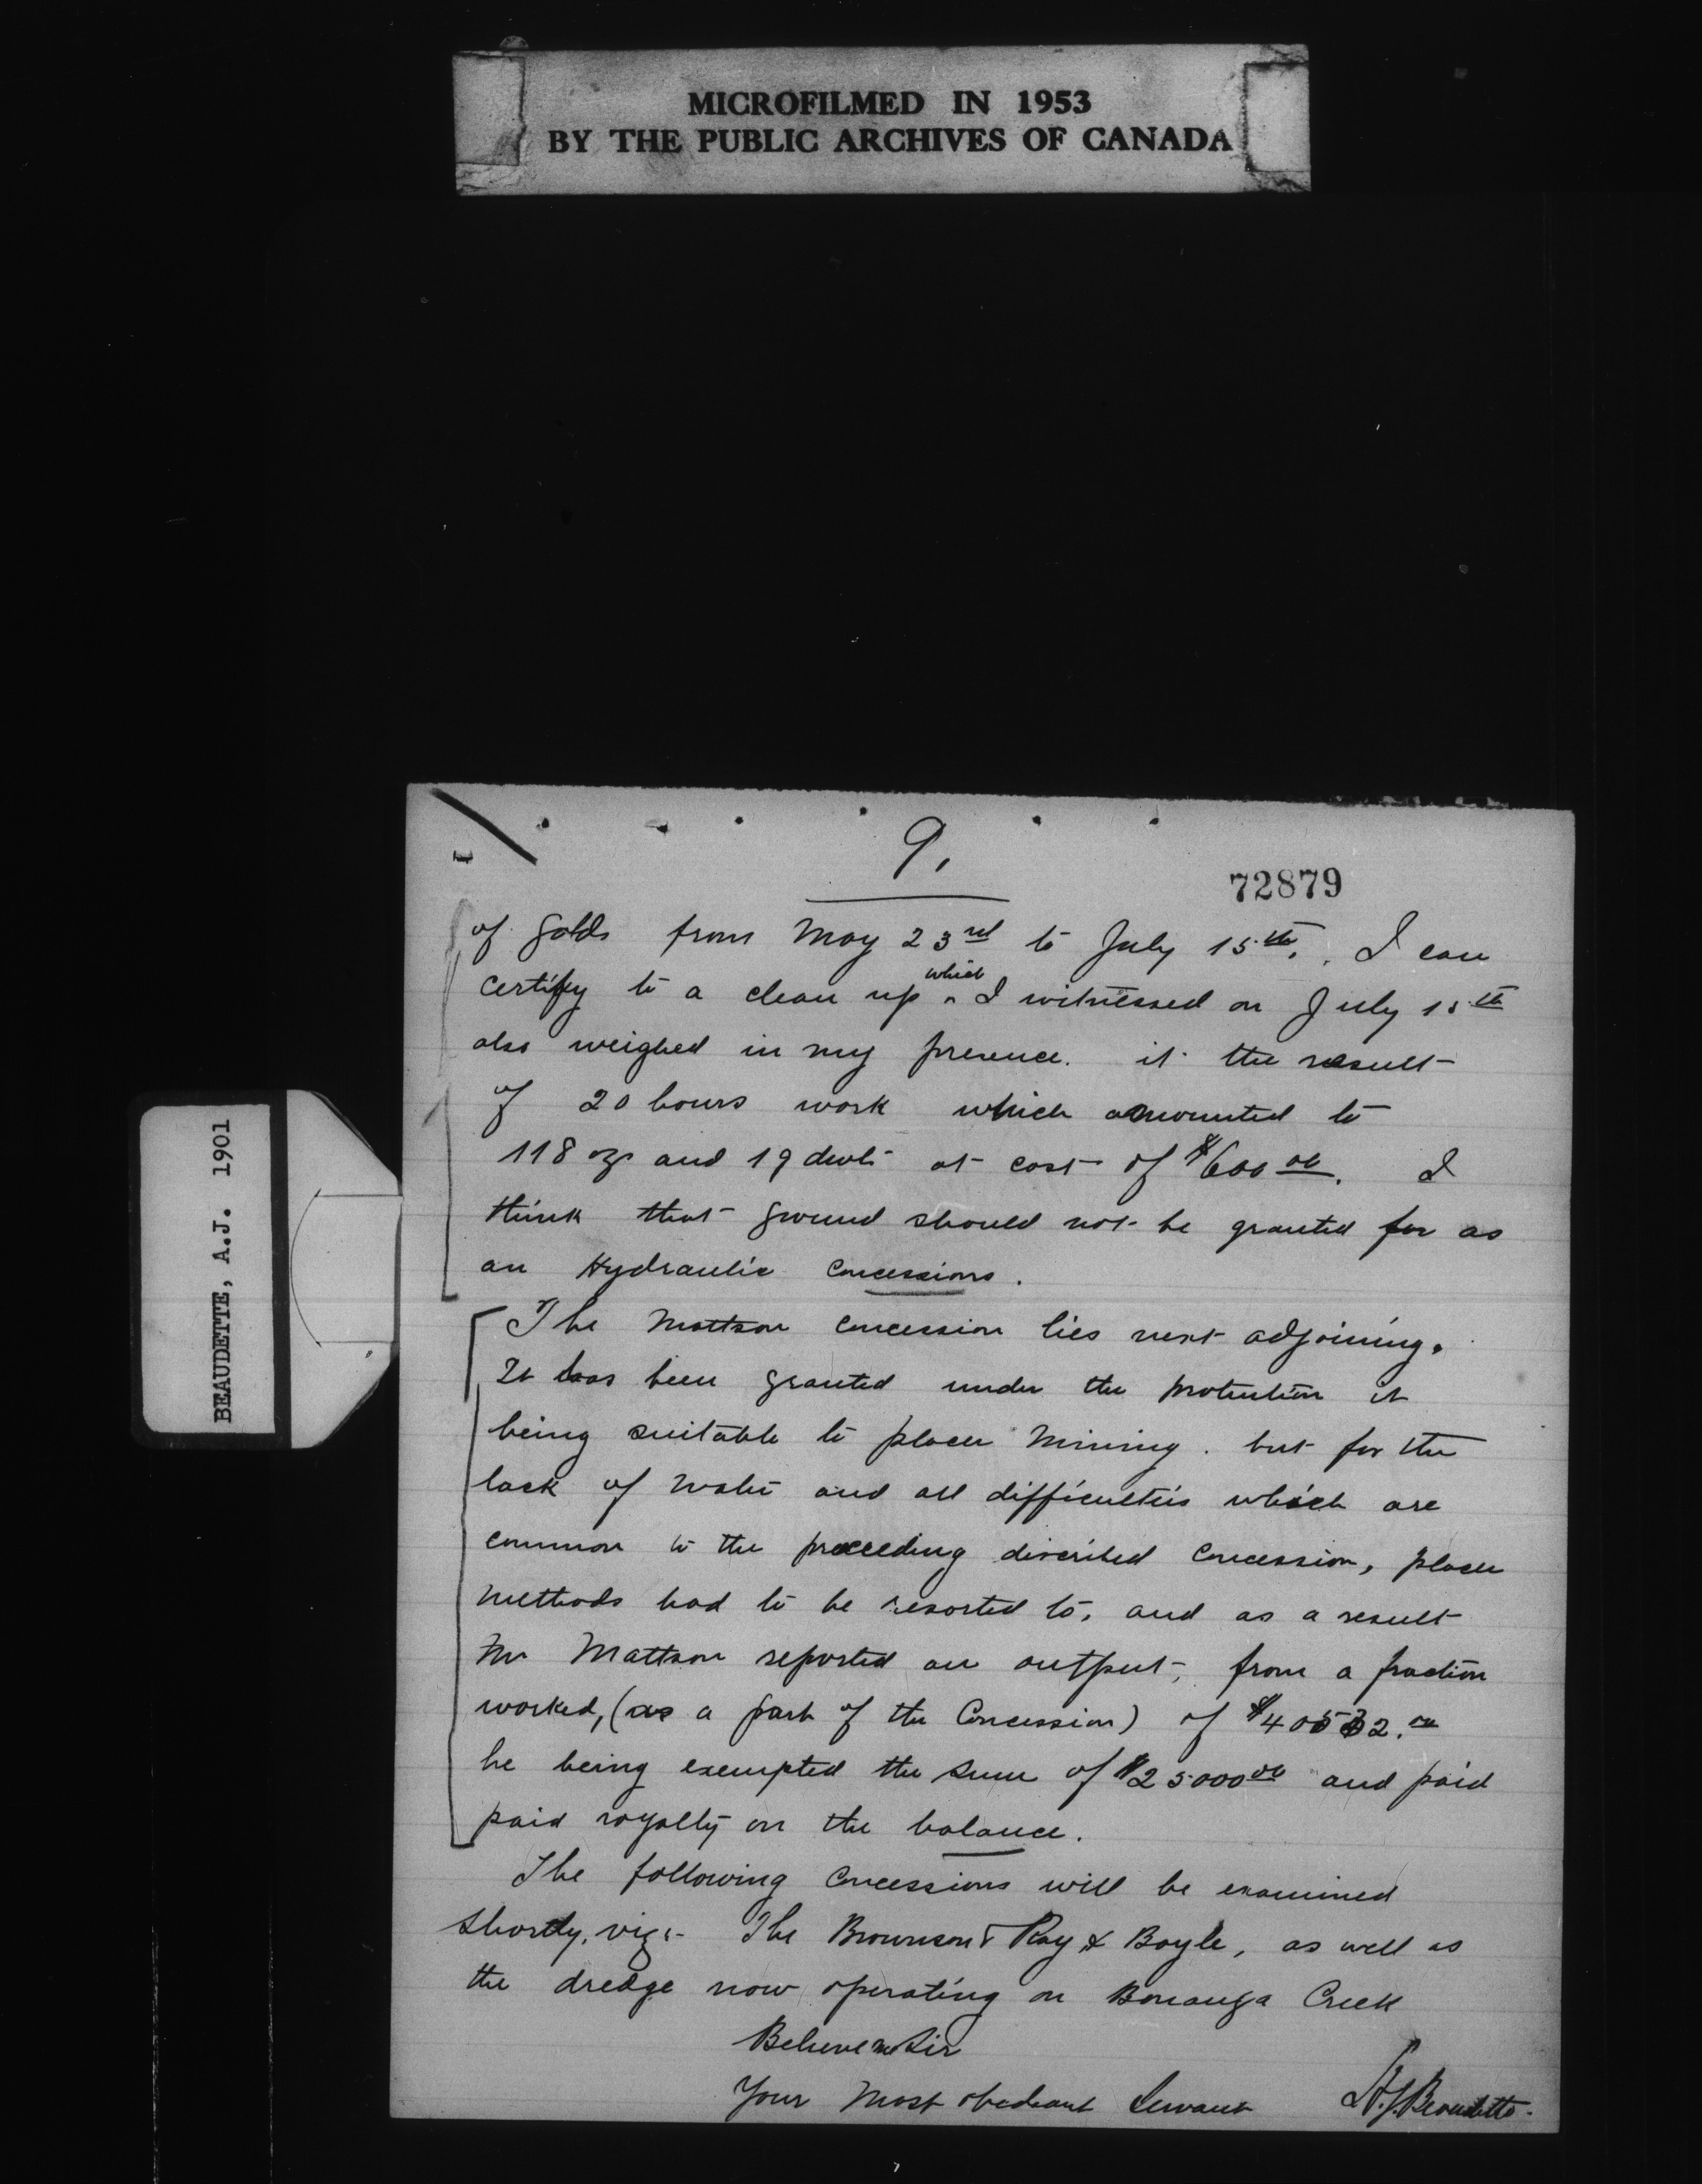 MICROFILMED IN 1953
BY THE PUBLIC ARCHIVES OF CANADA
BEAUDETTE, A.J. 1901
9.
72879
of golds from May 23rd to July 15th. I can
certify to a clean up which I witnessed on July 15th
also weighed in my presence. it the result
of 20 hours work which amounted to
118 oz and 19 dwts at cost of $600.00. I
think that ground should not be granted for as
an Hydraulic Concessions.
The Mattson concession lies next adjoining.
It has been granted under the protention it
being suitable to placer mining. but for the
lack of water and all difficulties which are
common to the preceeding discribed concession, placer
methods had to be resorted to, and as a result
Mr Mattson reported an output, from a fraction
worked, (as a part of the Concession) of
he being exempted the sum of $25000.00 and paid
paid royalty on the balance.
The following concessions will be examined
shortly, viz:- The Bronson & Ray & Boyle, as well as
the dredge now operating on Bonanza Creek
Believe me Sir
Your most obedeant Servant A.J. Beaudette.